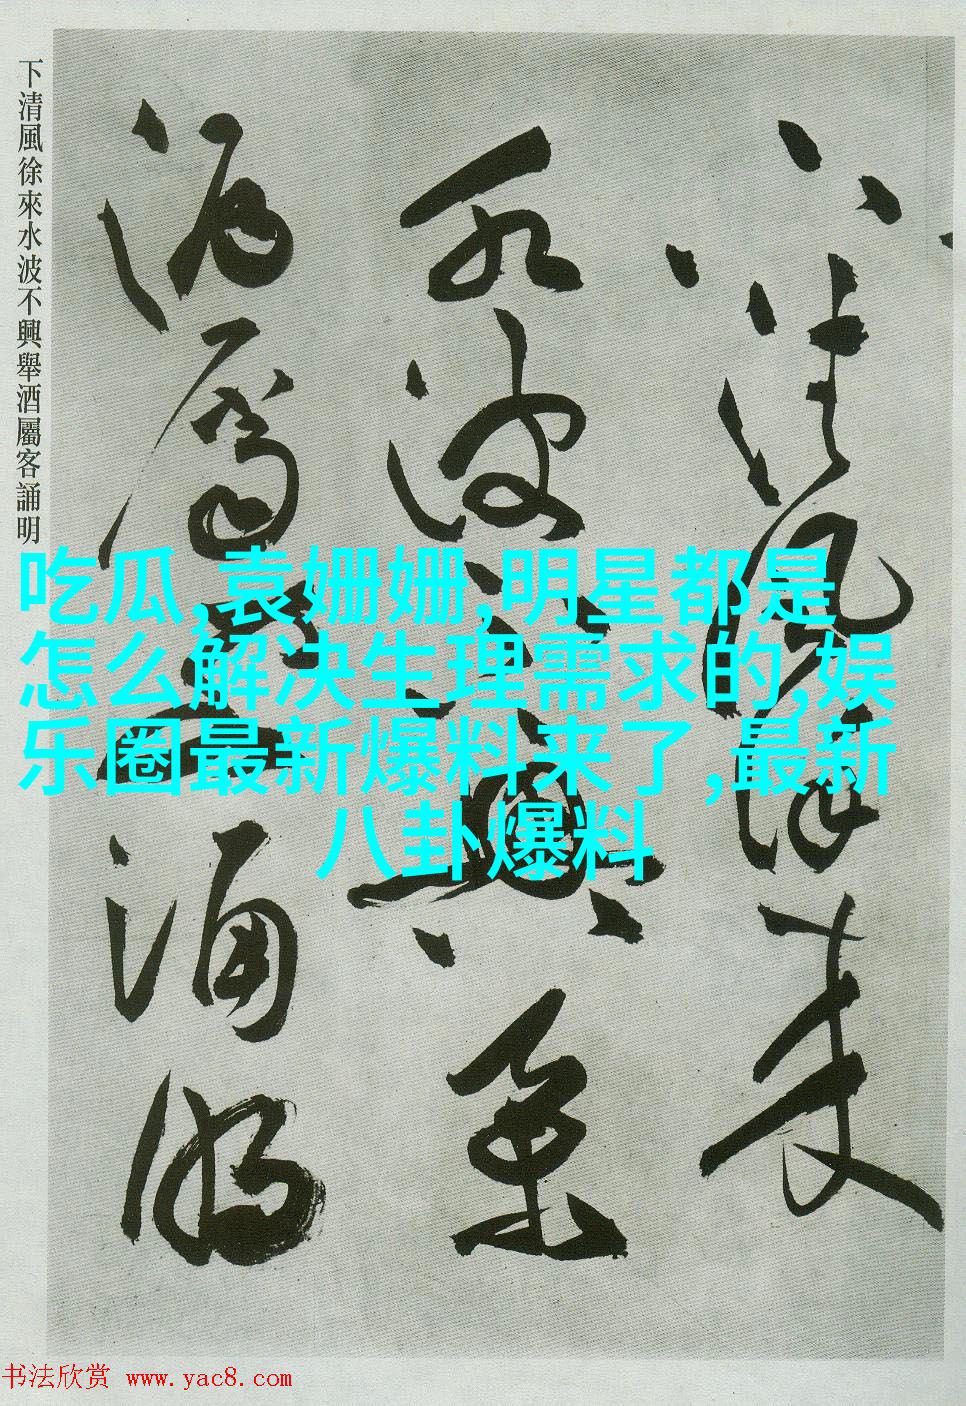 下清風徐來水波不興舉酒屬客誦明
吃瓜,袁姗姗,明星都是
怎么解决生理需求的,娱
乐圈最新爆料来了,最新
八卦爆料
清風徐來
水波不興舉
酒屬客誦明
书法欣赏 www.yac8.com